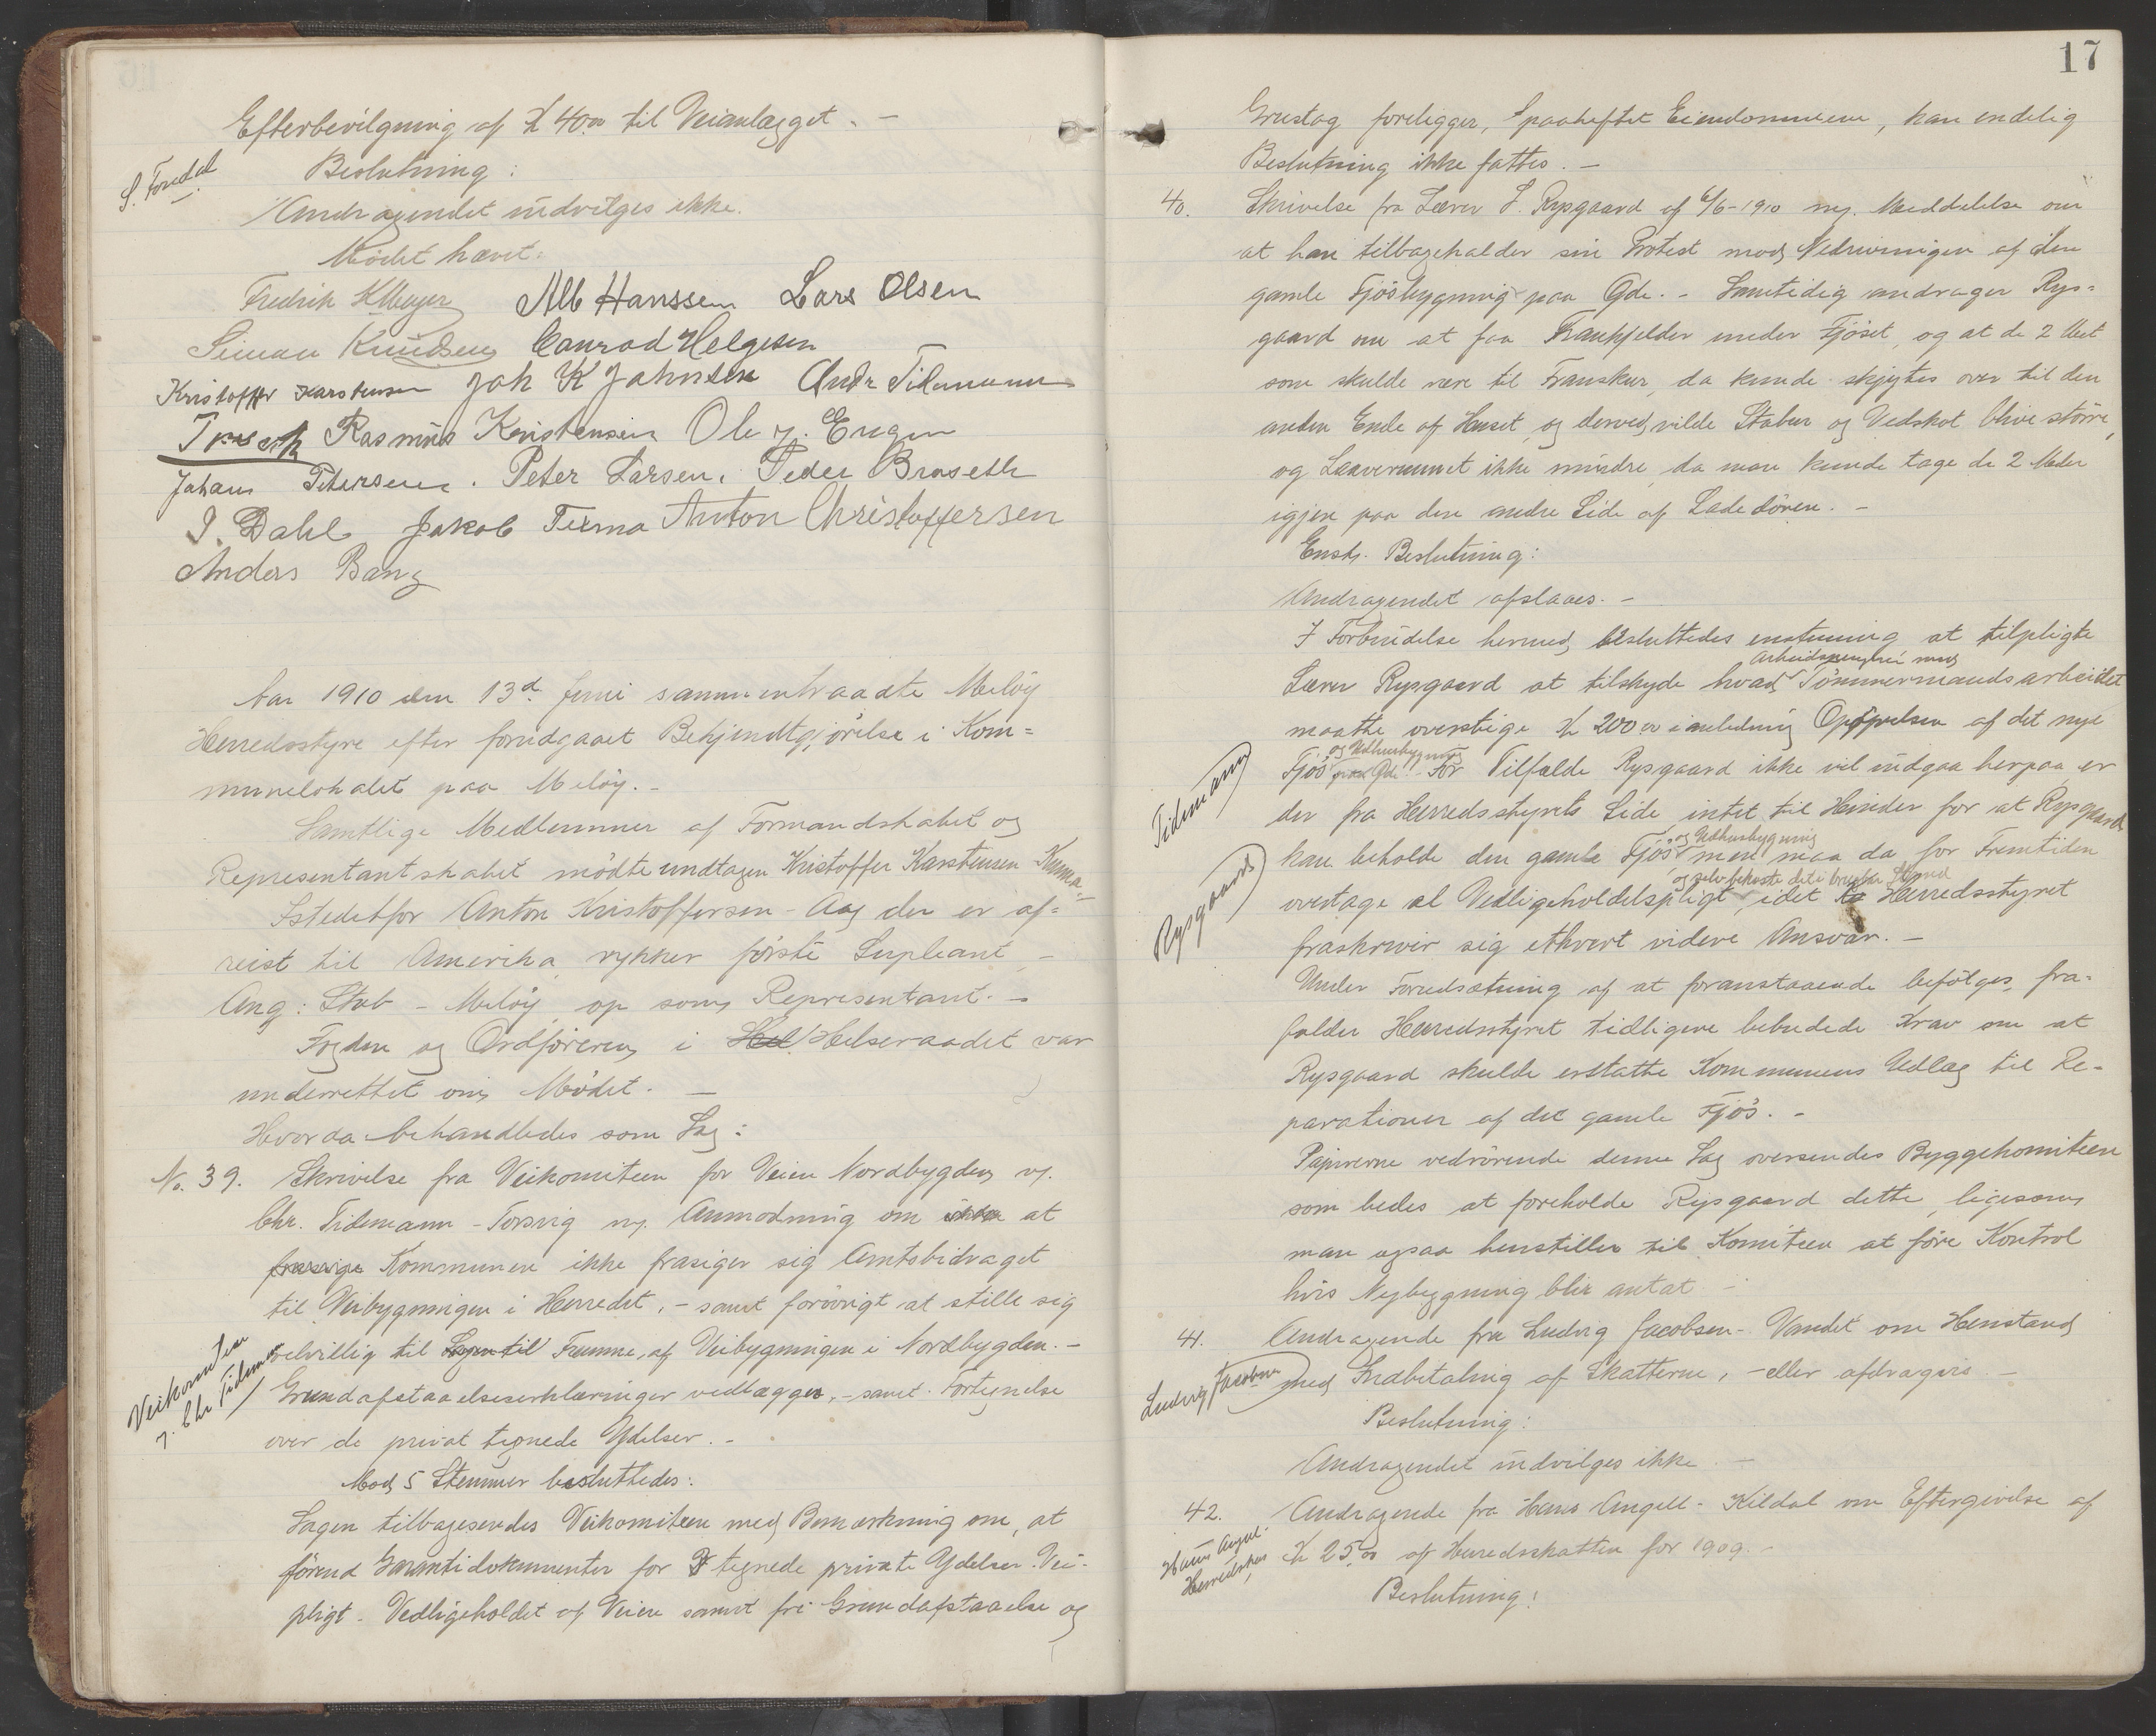 Efterbevilgning af K 400 til Veianlægget. -
S. Foredal
Beslutning:
Andragendet indvilges ikke.
Mödet hævet.
Fredrik KMeyer Alb Hanssen Lars Olsen
Simon Knudsen Conrad Helgesen
Kristoffer Karstensen Joh K Johnsen Andr Tidemann
Rasmus Kristensen Ole J. Engen
Johans Petersen. Peter Larsen. Peder Braseth
J. Dahl Jakob Anton Christoffersen
Anders Bang
Aar 1910 den 13d Juni sammentraadte Melöy
Herredsstyre efter forudgaaet Bekjendtgjörelse i Kom=
munelokalet paa Melöy. -
Samtlige Medlemmer af Formandskabet og
Representantskabet mödte undtagen Kristoffer Karstensen Kunna -
Istedetfor Anton Kristoffersen - Aag der er af=
reist til Amerika rykker förste Supleant, -
Ang: Stub - Melöy op som Representant. -
Fogden og Ordföreren i Hel Helseraadet var
underrettet om Mödet. -
Hvor da behandledes som Sag:
No. 39. Skrivelse fra Veikomiteen for Veien Nordbygden v.
Chr. Tidemann - Torsvig m. Anmodning om at
frasige Kommunen ikke frasiger sig Amtsbidraget
til Veibygningen i Herredet, - samt forövrigt at stille sig
velvillig til Sagen til Fremme af Veibygningen i Nordbygden. -
Veikomiteen
v. Chr Tidemann
Grundafstaaelseserklæringer vedlægges, - samt Fortegnelse
over de privat tegnede Ydelser. -
Mod 5 Stemmer besluttedes:
Sagen tilbagesendes Veikomiteen med Bemærkning om, at
förend Garantidokumenter for tegnede private Ydelser. Vei-
pligt. Vedligeholdet af Veien samt fri Grundafstaaelse og
17
Grustag foreligger, paaheftet Eiendommene, kan endelig
Beslutning ikke fattes. -
40. Skrivelse fra Lærer S. Rysgaard af 6/6-1910 m. Meddelelse om
at han tilbageholder sin Protest mod Nedrivningen af den
gamle Fjösbygning paa Gde. - Samtidig andrager Rys=
gaard om at faa Frankjelder under Fjöset, og at de 2 Met
som skulde være til Franskur, da kunde skjytes over til den
anden Ende af Huset, og derved vilde Stabur og Vedskot blive större,
og Laaverummet ikke mindre, da man kunde tage de 2 Meter
igjen paa den andre Side af Ladedören. -
Enst. Beslutning:
Andragendet afslaaes. -
I Forbindelse hermed besluttedes enstemmig at tilpligte
Arbeidspenger med
Lærer Rysgaard at tilskyde hvad Tömmermandsarbeidet
maatte overstige K 200 00 i anledning Opförelsen af det nye
og Udhusbygning
Fjös paa Gde. For Tilfælde Rysgaard ikke vil indgaa herpaa er
Tidemann
der fra Herredsstyrets Side intet til Hinder for at Rysgaard
og Udhusbygning
kan beholde den gamle Fjös men maa da for Fremtiden
og selv bekoste det i brugbar Stand
overtage al Vedligeholdelspligt, idet Herredsstyret
Rysgaard
fraskriver sig ethvert videre Ansvar. -
Under Forudsætning af at foranstaaende befölges, fra-
falder Herredsstyret tidligere bebudede Krav om at
Rysgaard skulde erstatte Kommunens Udlæg til Re-
parationer af det gamle Fjös. -
Papirerne vedrörende denne Sag oversendes Byggekomiteen
som bedes at foreholde Rysgaard dette, ligesom
man ogsaa henstiller til Komiteen at före Kontrol
hvis Nybygning blir antat -
41. Andragende fra Ludvig Jacobsen - Vandet om Henstand
Ludvig Jacobsen
med Indbetaling af Skatterne, - eller afdragsvis. -
Beslutning:
Andragendet indvilges ikke. -
42. Andragende fra Hans Angell - Kildal om Eftergivelse af
Hans Angel
K 25,00 af Herredsskatten for 1909. -
Beslutning: